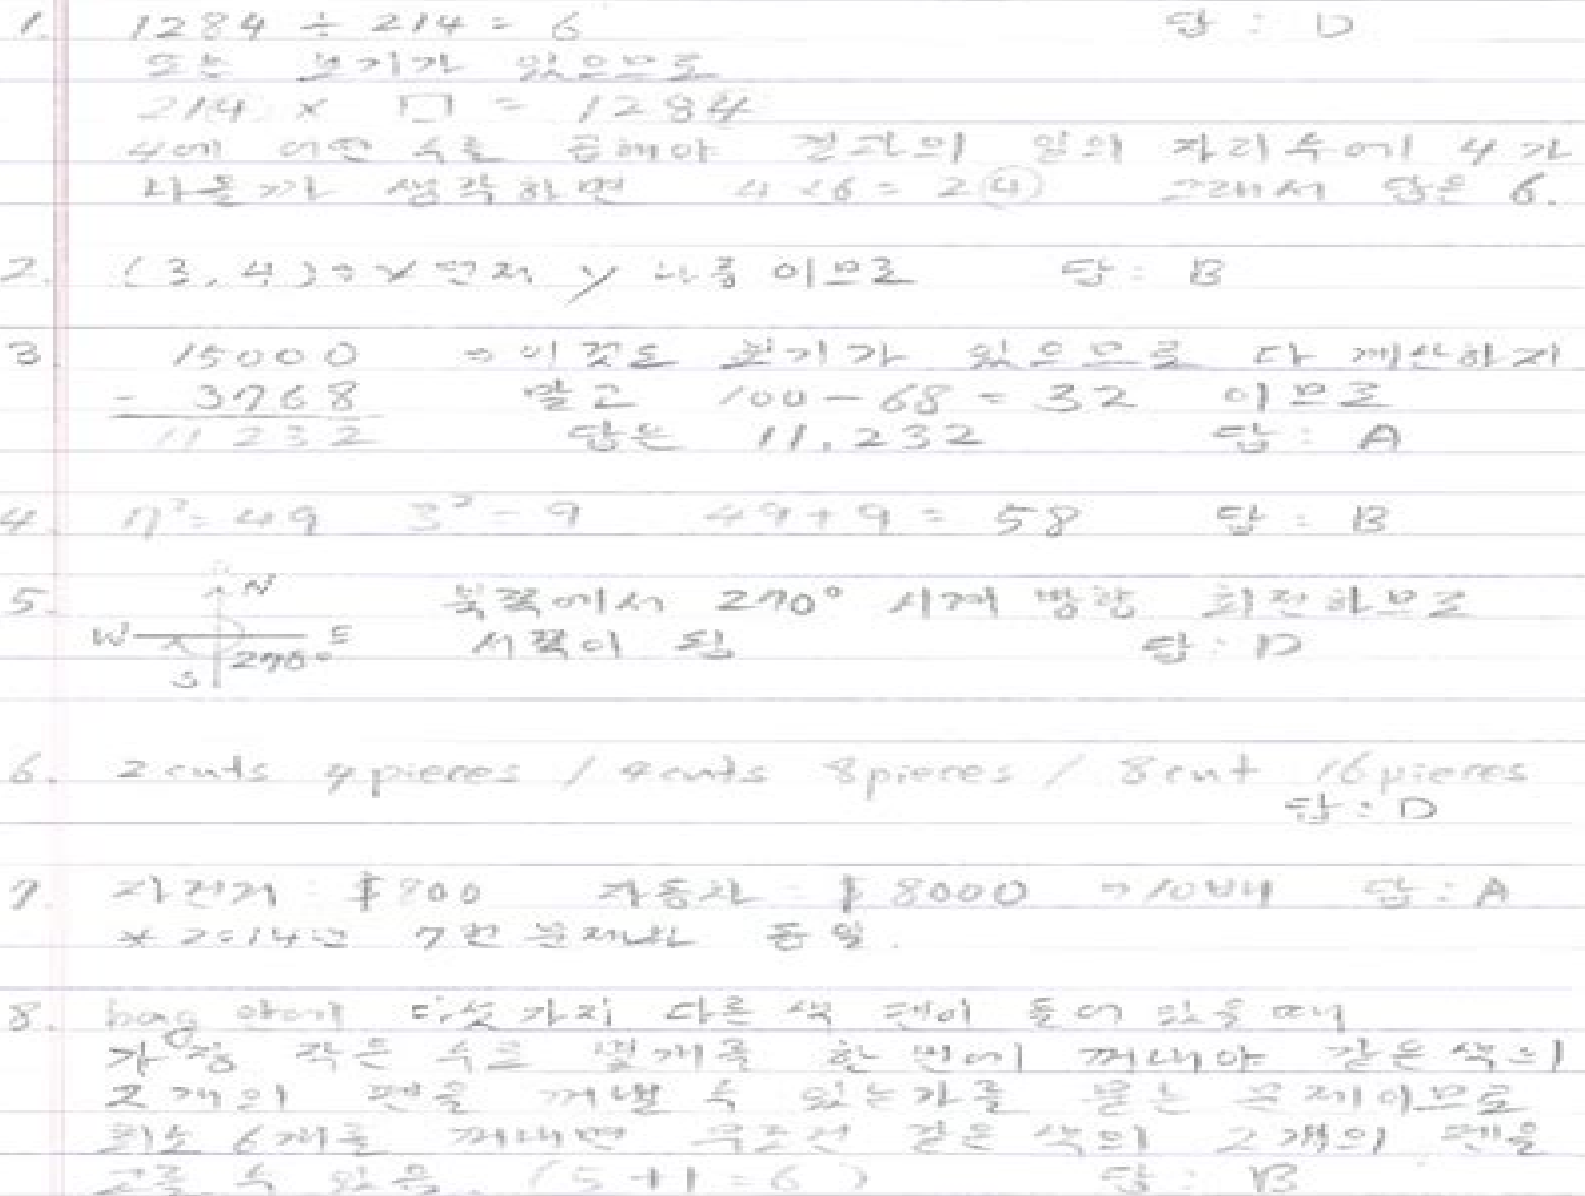 1. 1284 ÷ 214 = 6 답 : D
또는 보기가 있으므로
214 × □ = 1284
4에 어떤 수를 곱해야 결과의 일의 자리수에 4가
나올까 생각하면 4×6 = 24 그래서 답은 6.
2. (3, 4) ⇒ x 먼저 y 나중 이므로 답 : B
3. 15000 ⇒ 이것도 보기가 있으므로 다 계산하지
- 3768 말고 100 - 68 = 32 이므로
11232 답은 11,232 답 : A
4. 7² = 49 3² = 9 49 + 9 = 58 답 : B
5. N 북쪽에서 270° 시계 방향 회전하므로
W E 서쪽이 됨 답 : D
270°
S
6. 2 cuts 4 pieces / 4 cuts 8 pieces / 8 cut 16 pieces
답 : D
7. 자전거 : $800 자동차 : $8000 ⇒ 10배 답 : A
* 2014년 7번 문제와 동일.
8. bag 안에 다섯가지 다른 색 펜이 들어 있을 때
가장 작은 수로 몇개를 한 번에 꺼내야 같은 색의
2개의 펜을 꺼낼 수 있는가를 묻는 문제이므로
최소 6개를 꺼내면 무조건 같은 색의 2개의 펜을
고를 수 있음. (5+1=6) 답 : B